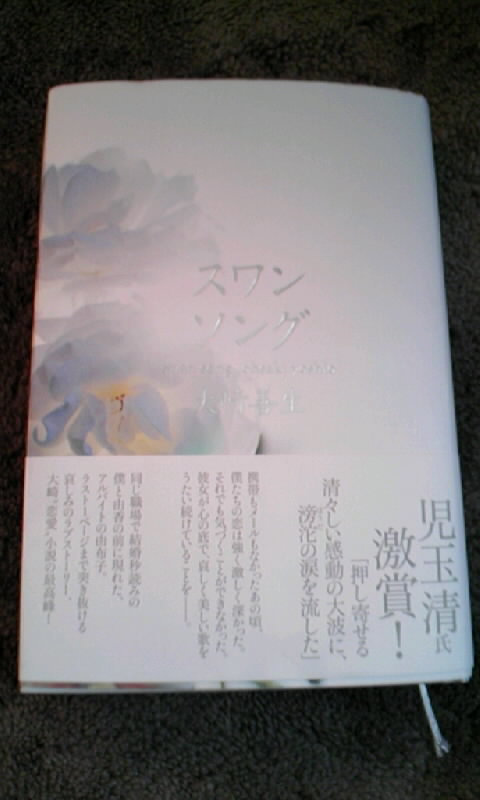 スワン
ソング
大崎善生
児玉清氏
激賞！
「押し寄せる
清々しい感動の大波に、
滂沱の涙を流した」
携帯もメールもなかったあの頃、
僕たちの恋は強く激しく深かった。
それでも気づくことができなかった、
彼女が心の底で、哀しく美しい歌を
うたい続けていることを――。
同じ職場で結婚秒読みの
僕と由香の前に現れた、
アルバイトの由布子。
ラスト一ページまで突き抜ける
哀しみのラブストーリー。
大崎“恋愛”小説の最高峰！